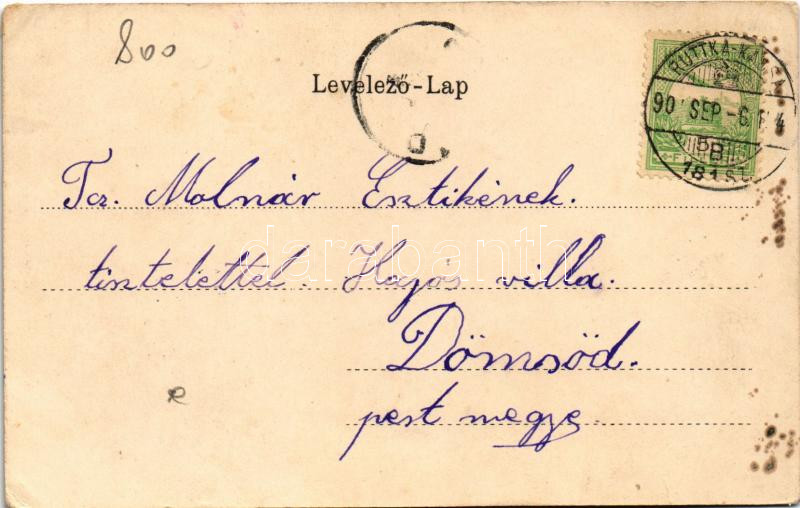 800
Levelező-Lap
RUTTKA-K
90 SEP -6
5B
181 SZ.
Tcz. Molnár Esztikének.
tisztelettel Hajós villa.
darabanth
Dömsöd.
pest megye.
e